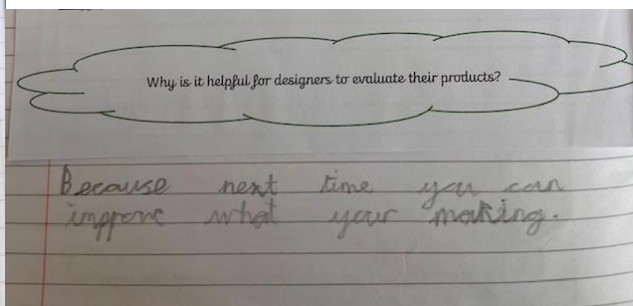 Why is it helpful for designers to evaluate their products?
Because next time you can
improve what your making.